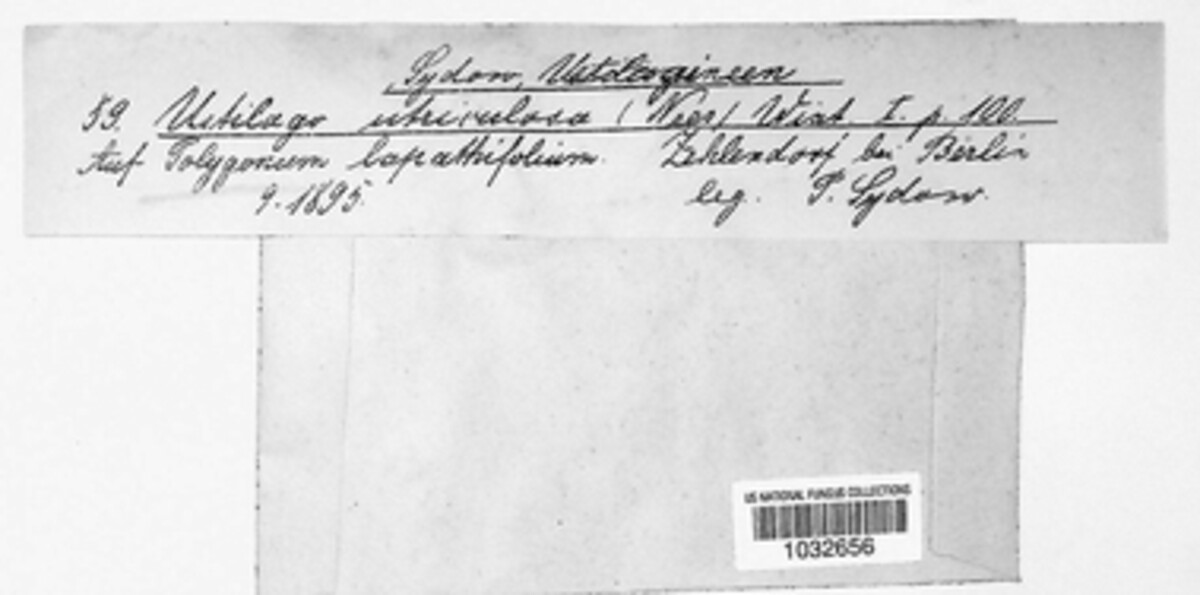 Sydow, Ustilagineen
59. Ustilago utriculosa (Nees) Wint. I. p. 100.
Auf Polygonum lapathifolium. Zehlendorf bei Berlin
9. 1895. leg. P. Sydow.
US NATIONAL FUNGUS COLLECTIONS
1032656